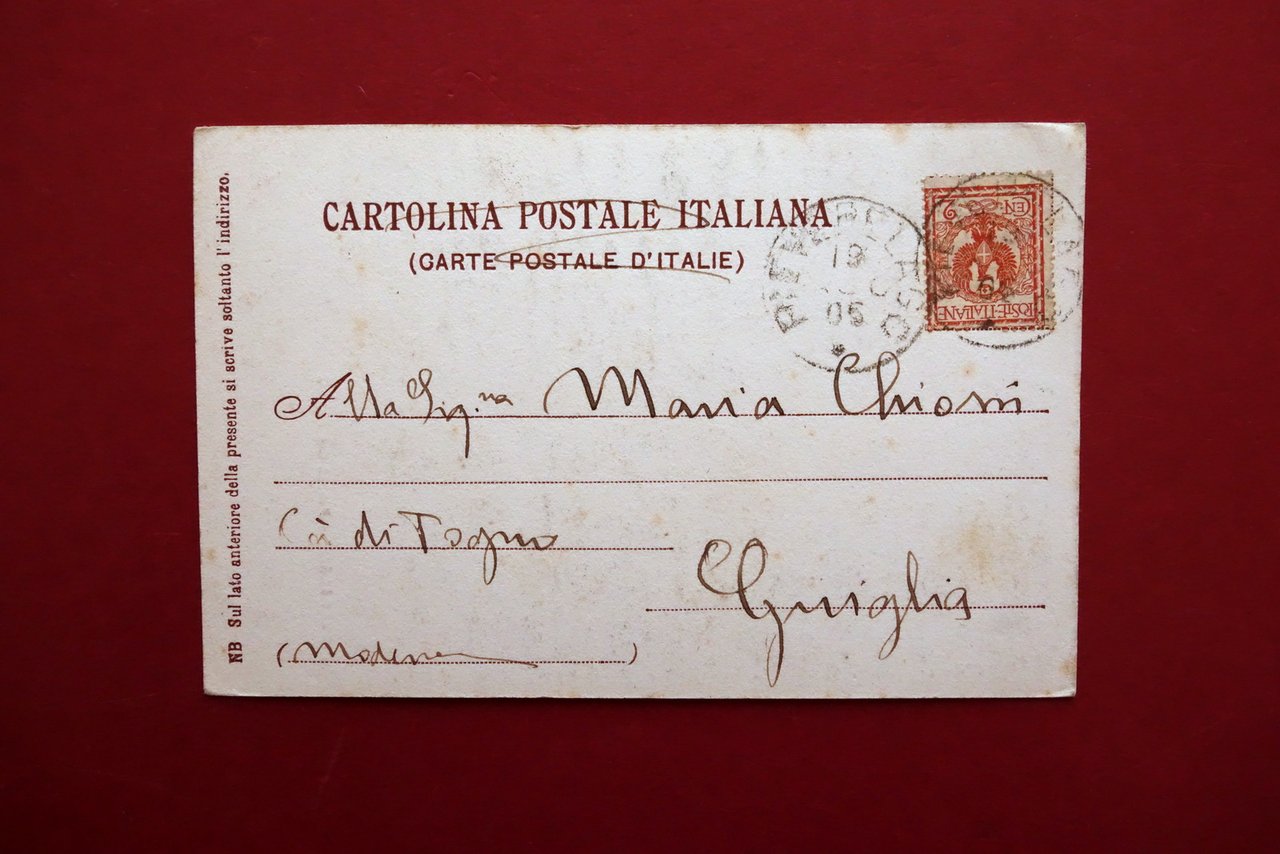 CARTOLINA POSTALE ITALIANA
(CARTE POSTALE D'ITALIE)
PIEVEPELAGO
19
05
POSTE·ITALIANE
CEN 2
Alla Sig.na Maria Chiosi
Cà di Togno
Guiglia
(Modena)
NB Sul lato anteriore della presente si scrive soltanto l'indirizzo.